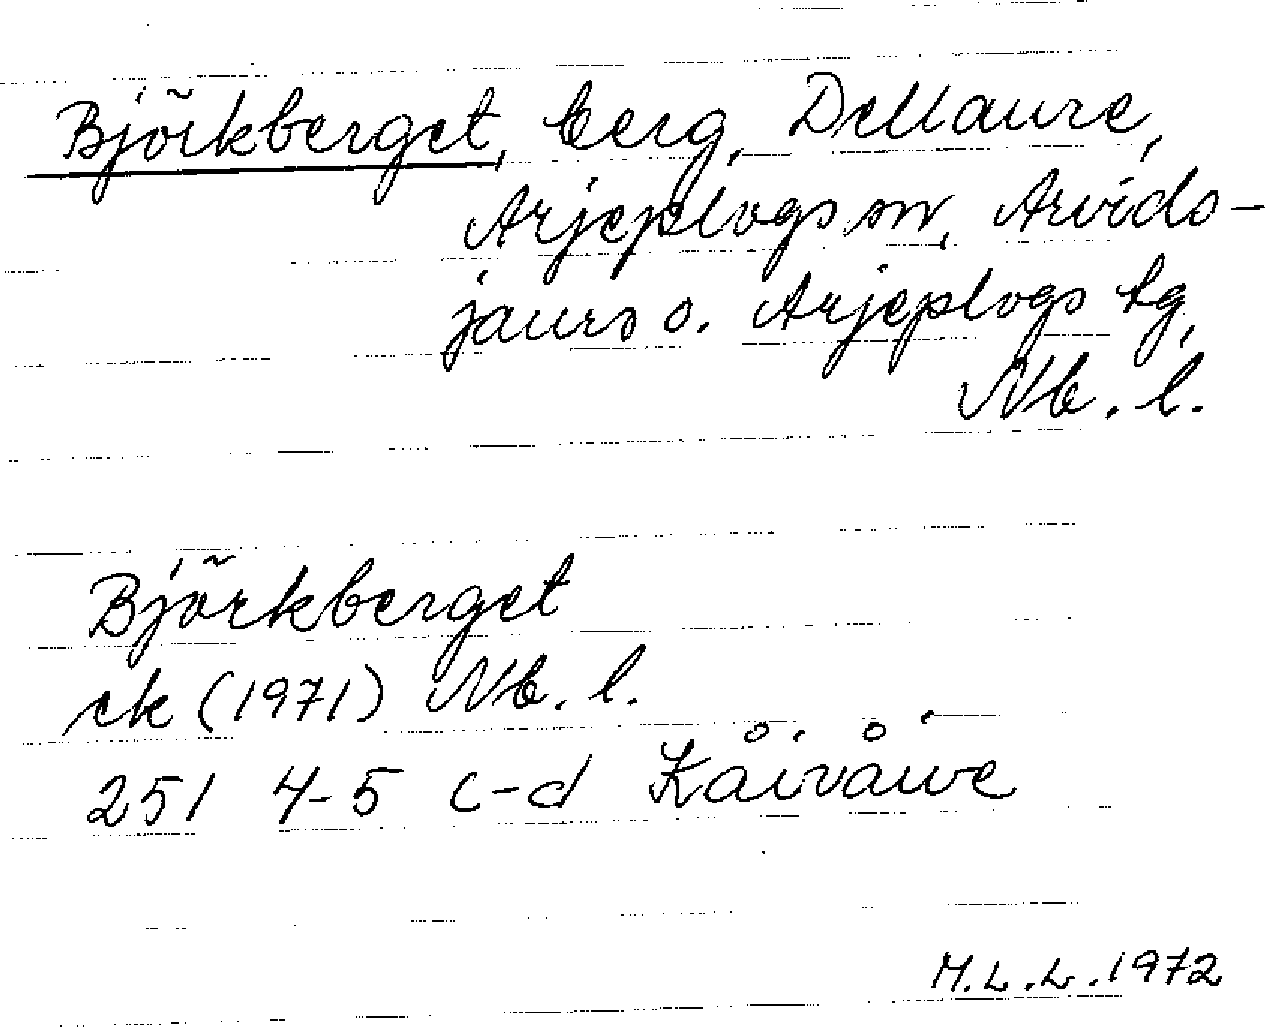 Björkberget, berg, Dellaure,
Arjeplogs sn, Arvids-
jaurs o. Arjeplogs tg,
Nb. l.
Björkberget
ek (1971) Nb. l.
251 4-5 c-d Kåivåive
M.L.L. 1972